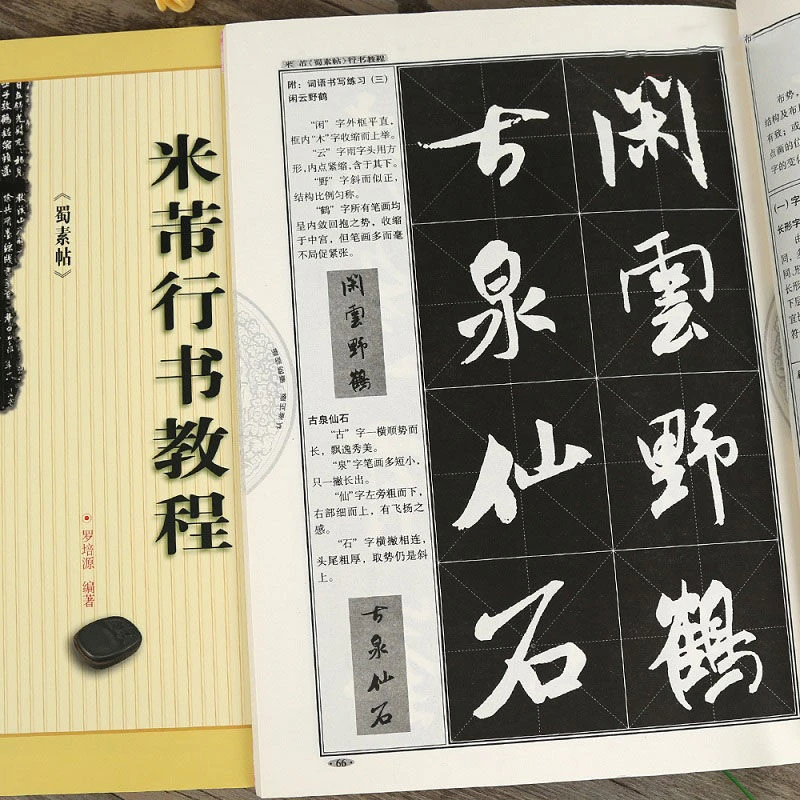 米芾行书教程
《蜀素帖》
罗培源 编著
米芾《蜀素帖》行书教程
附：词语书写练习（三）
闲云野鹤
“闲”字外框平直，
框内“木”字收缩而上举。
“云”字雨字头用方
形，内点紧缩，含于其下。
“野”字斜而似正，
结构比例匀称。
“鹤”字所有笔画均
呈内敛回抱之势，收缩
于中宫，但笔画多而毫
不局促紧张。
閑雲野鶴
古泉仙石
“古”字一横顺势而
长，飘逸秀美。
“泉”字笔画多短小，
只一撇长出。
“仙”字左旁粗而下，
右部细而上，有飞扬之
感。
“石”字横撇相连，
头尾粗厚，取势仍是斜
上。
古泉仙石
閑雲野鶴
古泉仙石
66
布势，
结构及布
有致；或
点画的位
字的变
（一）字
长形字
同，多
同，
长形
下
符